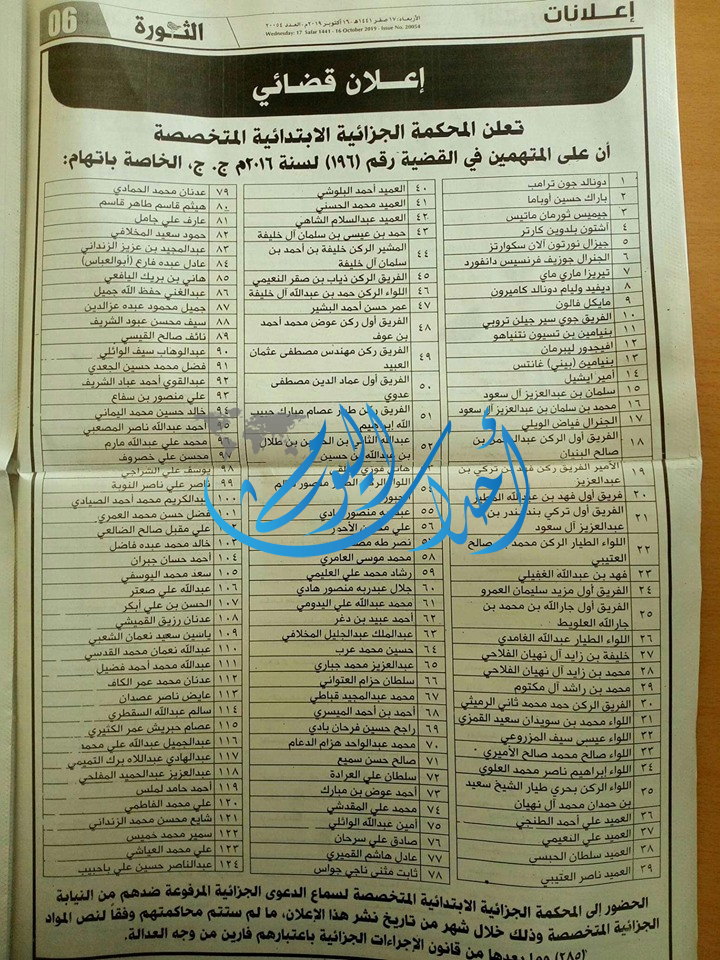 إعلانات
الأربعاء: ١٧ صفر ١٤٤١هـ - ١٦ أكتوبر ٢٠١٩م - العدد ٢٠٠٥٤
Wednesday: 17 Safar 1441 - 16 October 2019 - Issue No. 20054
الثورة
06
إعلان قضائي
تعلن المحكمة الجزائية الابتدائية المتخصصة
أن على المتهمين في القضية رقم (١٩٦) لسنة ٢٠١٦م ج. ج، الخاصة باتهام:
١ دونالد جون ترامب
٢ باراك حسين أوباما
٣ جيميس ثورمان ماتيس
٤ آشتون بلدوين كارتر
٥ جيزال نورتون آلان سكوارتز
٦ الجنرال جوزيف فرنسيس دانفورد
٧ تيريزا ماري ماي
٨ ديفيد وليام دونالد كاميرون
٩ مايكل فالون
١٠ الفريق جوي سير جيلن تروبي
١١ بنيامين بن تسيون نتنياهو
١٢ افيجدور ليبرمان
١٣ بنيامين (بيني) غانتس
١٤ أمير ايشيل
١٥ سلمان بن عبدالعزيز آل سعود
١٦ محمد بن سلمان بن عبدالعزيز آل سعود
١٧ الجنرال فياض الويلي
١٨ الفريق أول الركن عبدالرحمن بن
صالح البنيان
١٩ الأمير الفريق ركن فهد بن تركي بن
عبدالعزيز
٢٠ فريق أول فهد بن عبدالله المطير
٢١ الفريق أول تركي بن بندر بن
عبدالعزيز آل سعود
٢٢ اللواء الطيار الركن محمد بن صالح
العتيبي
٢٣ فهد بن عبدالله الغفيلي
٢٤ الفريق أول مزيد سليمان العمرو
٢٥ الفريق أول جارالله بن محمد بن
جارالله العلويط
٢٦ اللواء الطيار عبدالله الغامدي
٢٧ خليفة بن زايد آل نهيان الفلاحي
٢٨ محمد بن زايد آل نهيان الفلاحي
٢٩ محمد بن راشد آل مكتوم
٣٠ الفريق الركن حمد محمد ثاني الرميثي
٣١ اللواء محمد بن سويدان سعيد القمزي
٣٢ اللواء عيسى سيف المزروعي
٣٣ اللواء صالح محمد صالح الأميري
٣٤ اللواء إبراهيم ناصر محمد العلوي
٣٥ اللواء الركن بحري طيار الشيخ سعيد
بن حمدان محمد آل نهيان
٣٦ العميد علي أحمد الطنجي
٣٧ العميد علي النعيمي
٣٨ العميد سلطان الحبسي
٣٩ العميد ناصر العتيبي
٤٠ العميد أحمد البلوشي
٤١ العميد محمد الحسني
٤٢ العميد عبدالسلام الشاهي
٤٣ حمد بن عيسى بن سلمان آل خليفة
٤٤ المشير الركن خليفة بن أحمد بن
سلمان آل خليفة
٤٥ الفريق الركن ذياب بن صقر النعيمي
٤٦ اللواء الركن حمد بن عبدالله آل خليفة
٤٧ عمر حسن أحمد البشير
٤٨ الفريق أول ركن عوض محمد أحمد
بن عوف
٤٩ الفريق ركن مهندس مصطفى عثمان
العبيد
٥٠ الفريق أول عماد الدين مصطفى
عدوي
٥١ الفريق ركن طيار عصام مبارك حبيب
الله إبراهيم
٥٢ عبدالله الثاني بن الحسين بن طلال
بن عبدالله بن حسين
هاني فوزي
٥٤ اللواء الركن الطيار منصور سالم
٥٥ عبدربه منصور هادي
٥٦ علي محسن الأحمر
نصر طه مصطفى
٥٨ محمد موسى العامري
٥٩ رشاد محمد علي العليمي
٦٠ جلال عبدربه منصور هادي
٦١ محمد عبدالله علي اليدومي
٦٢ أحمد عبيد بن دغر
٦٣ عبدالملك عبدالجليل المخلافي
٦٤ حسين محمد عرب
٦٥ عبدالعزيز محمد جباري
٦٦ سلطان حزام العتواني
٦٧ محمد عبدالمجيد قباطي
٦٨ أحمد بن أحمد الميسري
٦٩ راجح حسين فرحان بادي
٧٠ محمد عبدالواحد هزام الدعام
٧١ صالح حسن سميع
٧٢ سلطان علي العرادة
٧٣ أحمد عوض بن مبارك
٧٤ محمد علي المقدشي
٧٥ أمين عبدالله الوائلي
٧٦ صادق علي سرحان
٧٧ عادل هاشم القميري
٧٨ ثابت مثنى ناجي جواس
٧٩ عدنان محمد الحمادي
٨٠ هيثم قاسم طاهر قاسم
٨١ عارف علي جامل
٨٢ حمود سعيد المخلافي
٨٣ عبدالمجيد بن عزيز الزنداني
٨٤ عادل عبده فارع (أبوالعباس)
٨٥ هاني بن بريك اليافعي
٨٦ عبدالغني حفظ الله جميل
٨٧ جميل محمود عبده عزالدين
٨٨ سيف محسن عبود الشريف
٨٩ نائف صالح القيسي
٩٠ عبدالوهاب سيف الوائلي
٩١ فضل محمد حسين الجعدي
٩٢ عبدالقوي أحمد عباد الشريف
٩٣ علي منصور بن سفاع
٩٤ خالد حسين محمد اليماني
٩٥ أحمد عبدالله ناصر المصعبي
٩٦ محمد علي عبدالله مارم
محسن علي خصروف
٩٨ يوسف علي الشراجي
٩٩ ناصر علي ناصر النوبة
١٠٠ عبدالكريم محمد أحمد الصيادي
١٠١ فضل حسن محمد العمري
علي مقبل صالح الضالعي
١٠٣ خالد محمد عبده فاضل
١٠٤ أحمد حسان جبران
١٠٥ سعد محمد اليوسفي
١٠٦ عبدالله علي صعتر
١٠٧ الحسن بن علي أبكر
١٠٨ عدنان رزيق القميشي
١٠٩ ياسين سعيد نعمان الشعبي
١١٠ عبدالله نعمان محمد القدسي
١١١ عبدالله محمد أحمد فضيل
١١٢ عدنان محمد عمر الكاف
١١٣ عايض ناصر عصدان
١١٤ سالم عبدالله السقطري
١١٥ عصام حبريش عمر الكثيري
١١٦ عبدالجميل عبدالله علي محمد
١١٧ عبدالهادي عبداللاه برك التميمي
١١٨ عبدالعزيز عبدالحميد المفلحي
١١٩ أحمد حامد لملس
١٢٠ علي محمد الفاطمي
١٢١ شايع محسن محمد الزنداني
١٢٢ سمير محمد خميس
١٢٣ علي محمد العياشي
١٢٤ عبدالناصر حسين علي باحبيب
أحداث اليوم
الحضور إلى المحكمة الجزائية الابتدائية المتخصصة لسماع الدعوى الجزائية المرفوعة ضدهم من النيابة
الجزائية المتخصصة وذلك خلال شهر من تاريخ نشر هذا الإعلان، ما لم ستتم محاكمتهم وفقا لنص المواد
(٢٨٥) وما بعدها من قانون الإجراءات الجزائية باعتبارهم فارين من وجه العدالة.